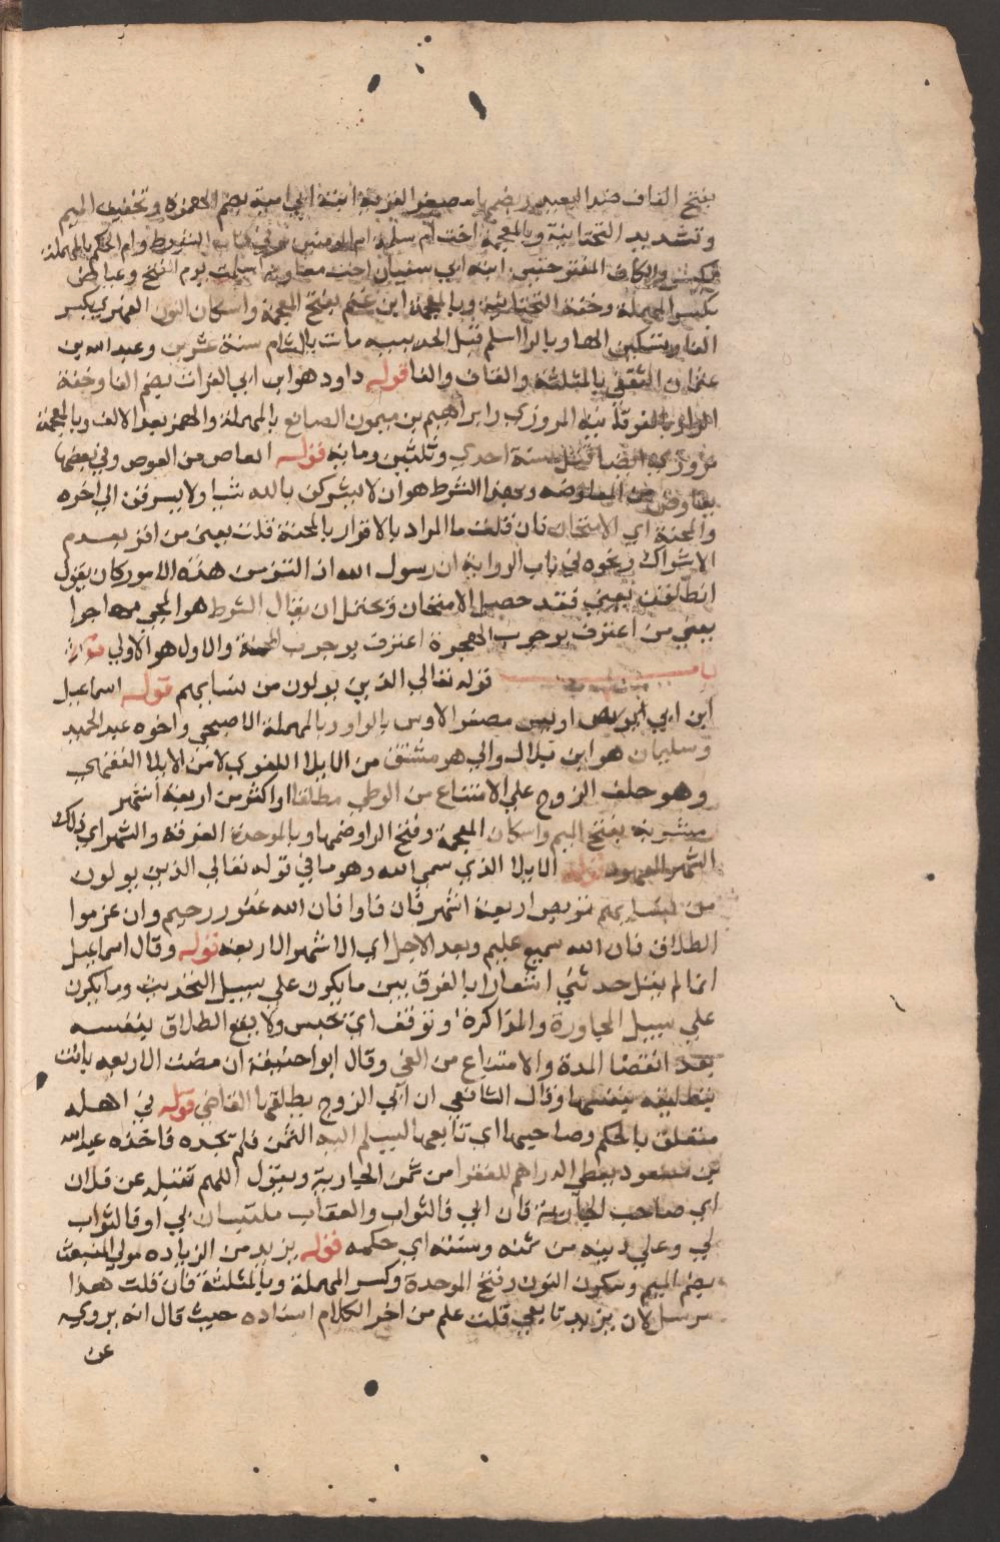 بفتح القاف ضد البعيد وبضمها مصغر القربة ابنة ابي امية بضم الهمزة وتخفيف الميم
وتشديد التحتانية وبالمعجمة اخت ام سلمة ام المومنين في كتاب الشروط وام الحكم بالمهملة
والكاف المفتوحتين ابنة ابي سفيان اخت معاوية اسلمت يوم الفتح وعياض
بكسر المهملة وخفة التحتانية وبالمعجمة ابن غنم بفتح المعجمة واسكان النون الفهري بكسر
الفا وتسكين الها وبالرا اسلم قبل الحديبية مات بالشام سنة عشرين وعبد الله بن
عثمان الثقفي بالمثلثة والقاف والفا قوله داود هو ابن ابي الفرات بضم الفا وخفة
الرا وبالفوقانية المروزي وابراهيم بن ميمون الصائغ بالمهملة والهمز بعد الالف وبالمعجمة
مروزي ايضا قتل سنة احدي وثلثين وماية قوله العاص من العوص وفي بعضها
من المعاوضة وهذا الشرط هو ان لا يشركن بالله شيا ولا يسرقن الي اخره
والمحنة اي الامتحان فان قلت ما المراد بالاقرار بالمحنة قلت يعني من اقر بعدم
الاشراك ونحوه في باب الرواية ان رسول الله اذ التزمن هذه الامور كان يقول
انطلقن يعني فقد حصل الامتحان ويحتمل ان يقال الشرط هو المجي مهاجرا
يعني من اعترف بوجوب الهجرة اعترف بوجوب المحنة والاول هو الاولي
باب قوله تعالي الذين يولون من نسايهم قوله اسماعيل
ابن ابي اويس مصغر الاوس بالواو وبالمهملة الاصبحي واخوه عبد الحميد
وسليمان هو ابن بلال والي هو مشتق من الايلا اللغوي لا من الايلا الفقهي
وهو حلف الزوج علي الامتناع من الوطي مطلقا او اكثر من اربعة اشهر
ومشربة بفتح الميم واسكان المعجمة وفتح الرا وضمها وبالموحدة الغرفة والشهر اي ذلك
الشهر المعهود قوله الايلا الذي سمي الله وهو ما في قوله تعالي الذين يولون
من نسايهم تربص اربعة اشهر فان فاوا فان الله غفور رحيم وان عزموا
الطلاق فان الله سميع عليم وبعد الاجل اي الاشهر الاربعة قوله وقال اسماعيل
انما لم يقل حدثني اشعارا بالفرق بين ما يكون علي سبيل التحديث وما يكون
علي سبيل المحاورة والمذاكرة وتوقف اي تحبس ولا يقع الطلاق بنفسه
بعد انقضا المدة والامتناع من الفي وقال ابو حنيفة ان مضت الاربعة بانت
بتطليقة بنفسها وقال الشافعي ان ابي الزوج يطلقها القاضي قوله في اهله
متعلق بالحكم وصاحبها اي تابعها ليسلم اليه الثمن فلم يجده فاخذه عبد الله
بن مسعود يعطي الدراهم للفقرا من ثمن الجارية ويقول اللهم تقبل عن فلان
اي صاحب الجارية فان ابي فالثواب والعقاب ملتبسان بي او فالثواب
لي وعلي دينه من ثمنه وسنته اي حكمه قوله يزيد من الزيادة مولي المنبعث
بضم الميم وسكون النون وفتح الموحدة وكسر المهملة وبالمثلثة فان قلت هذا
مرسل لان يزيد تابعي قلت علم من اخر الكلام اسناده حيث قال انه يرويه
عن